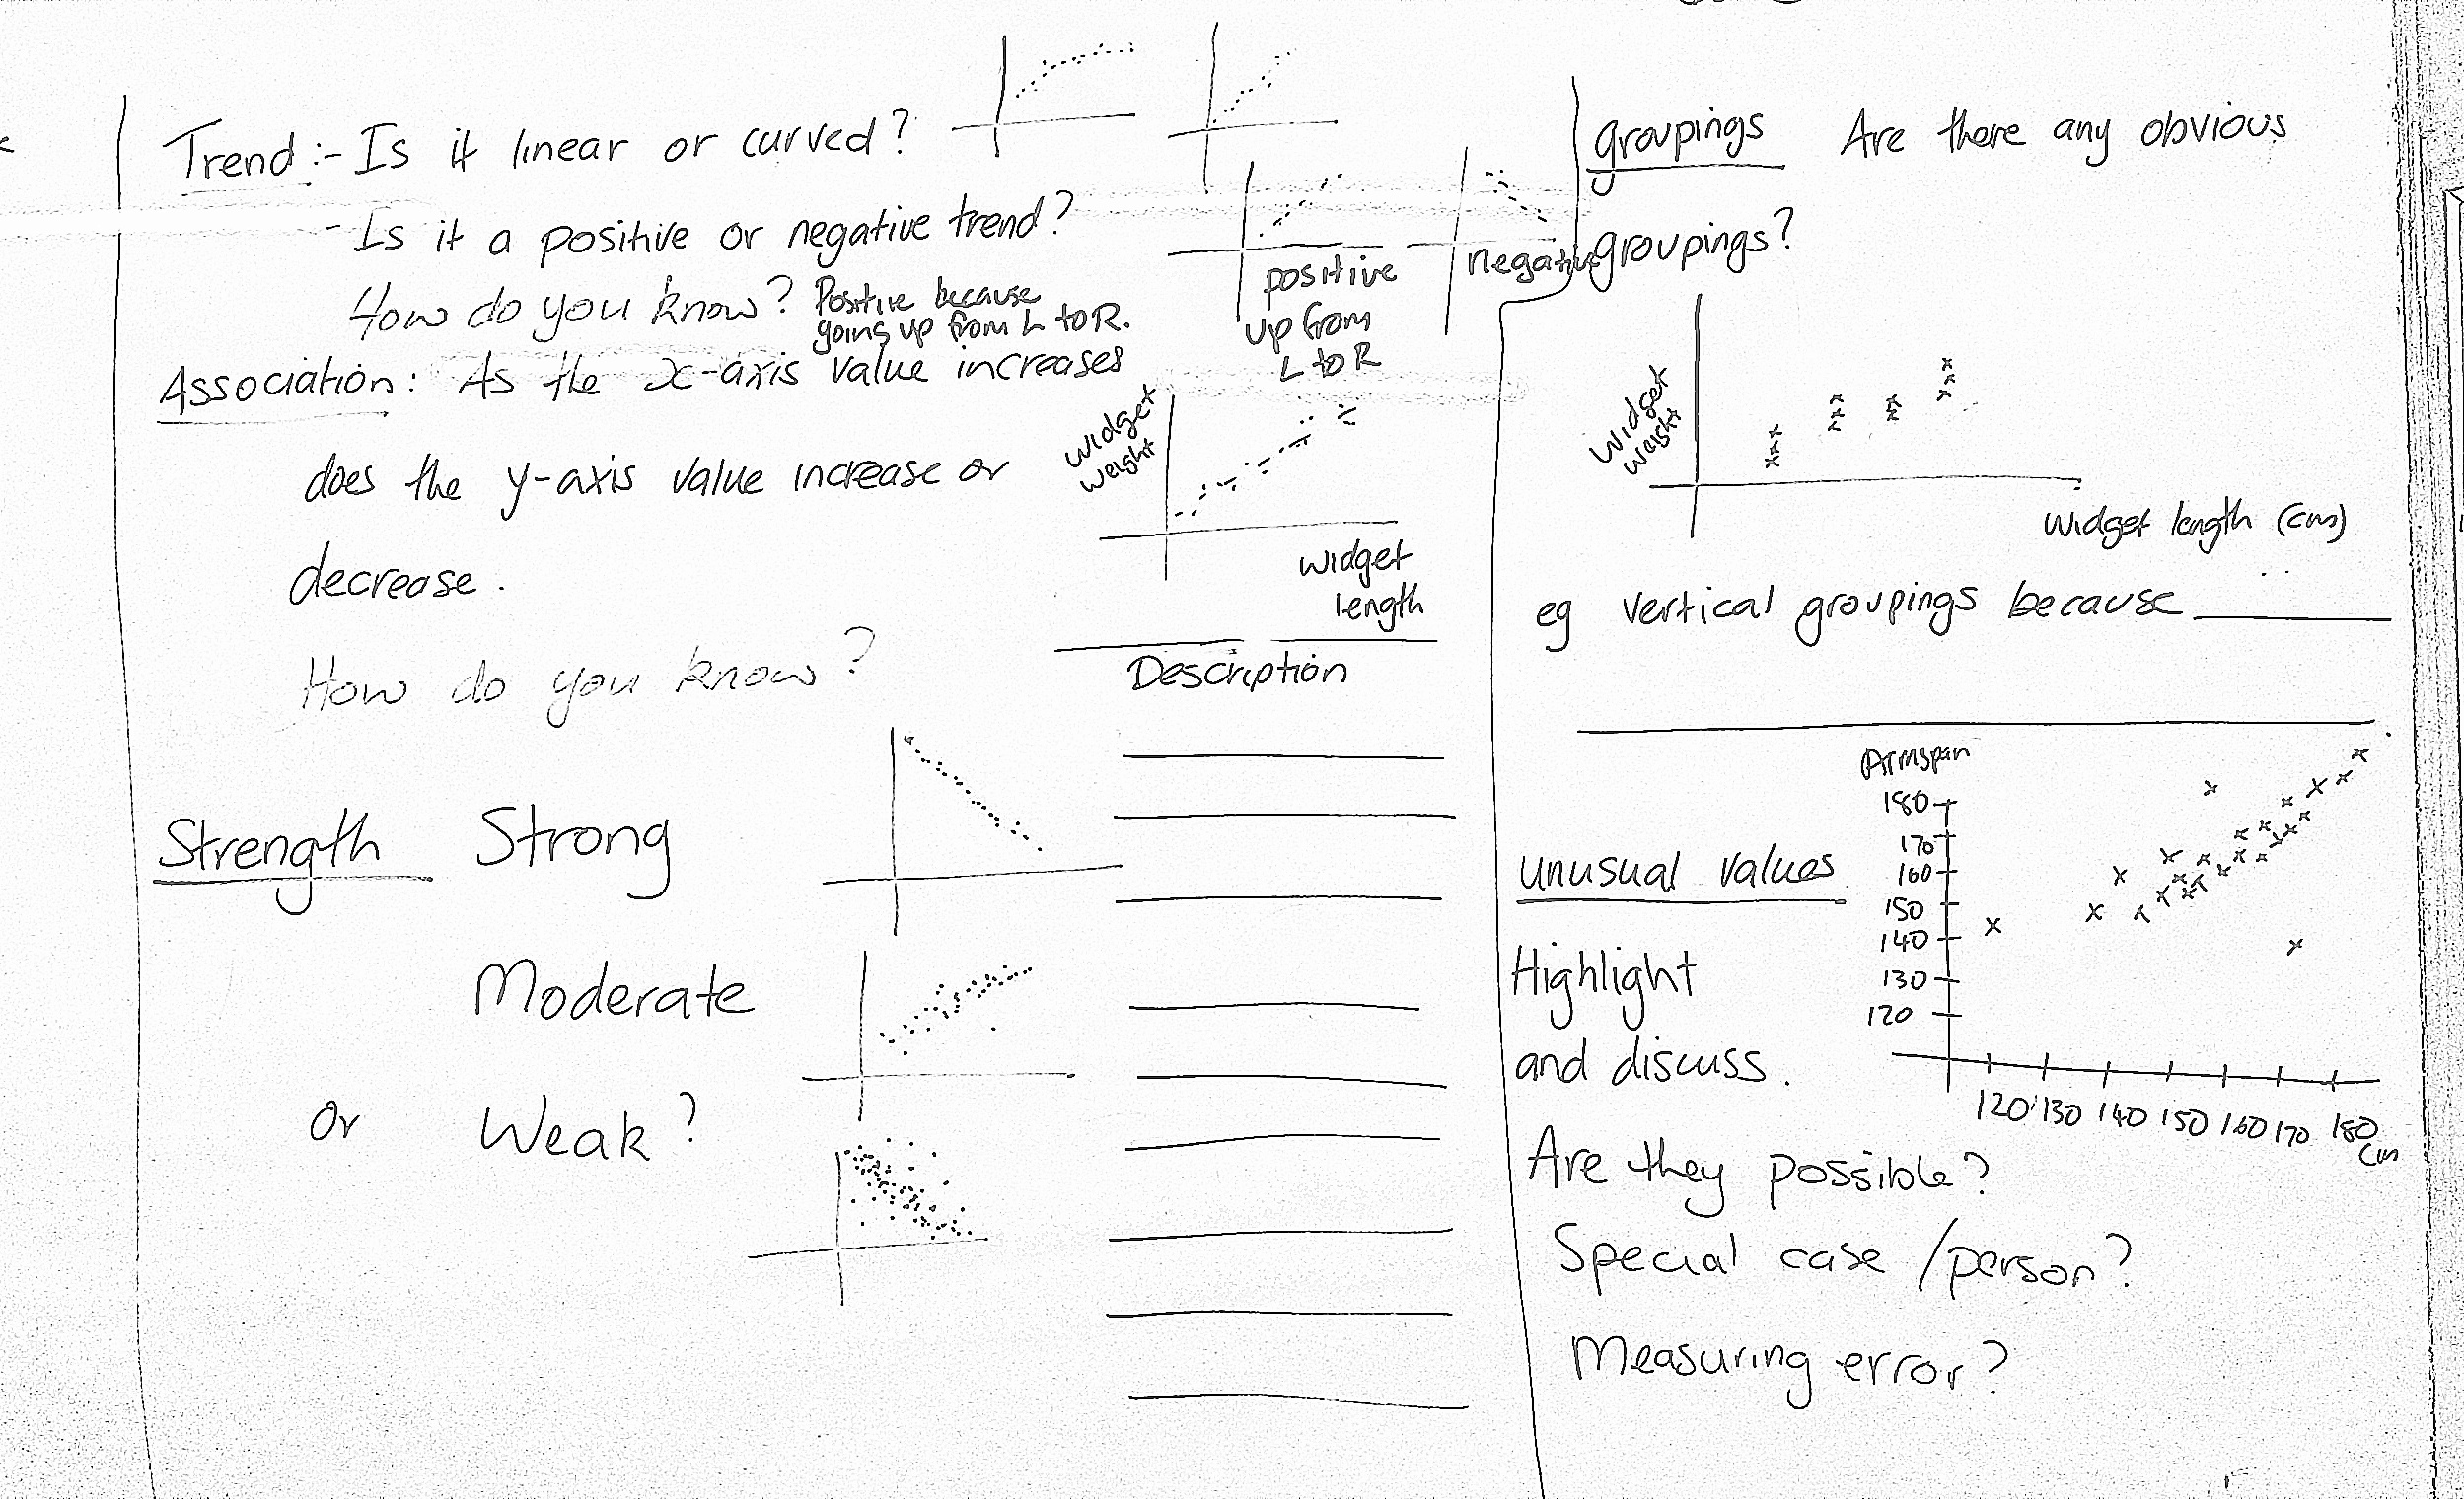 Trend :- Is it linear or curved?
- Is it a positive or negative trend?
How do you know? Positive because
going up from L to R.
positive
up from
L to R
negative
Association: As the x-axis value increases
does the y-axis value increase or
decrease.
How do you know?
Widget
weight
widget
length
Description
Strength Strong
Moderate
Or Weak?
groupings Are there any obvious
groupings?
Widget
weight
Widget length (cm)
eg vertical groupings because
unusual values
Highlight
and discuss.
Armspan
180
170
160
150
140
130
120
120 130 140 150 160 170 180
cm
Are they possible?
Special case / person?
Measuring error?